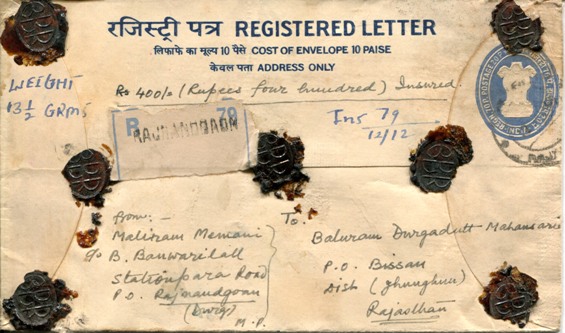 रजिस्ट्री पत्र REGISTERED LETTER
लिफाफे का मूल्य 10 पैसे COST OF ENVELOPE 10 PAISE
केवल पता ADDRESS ONLY
WEIGHT
13 1/2 GRMS
Rs 400/= (Rupees four hundred) Insured.
R 79
RAJNANDGAON
Ins 79
12/12
From:-
Maliram Memani
c/o B. Banwarilall
Stationpara Road
P.O. Rajnandgaon
(Durg)
M.P.
To.
Baluram Durgadutt Mahansaria
P.O. Bissau
Dist (Jhunjhunu)
Rajasthan